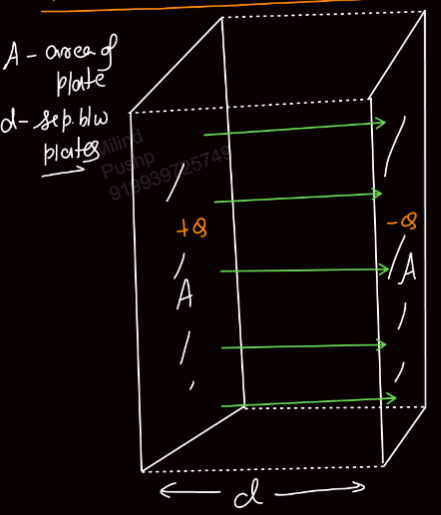 A - area of
plate
d - sep. b/w
plates
Milind
Pushp
919939725749
+Q
-Q
A
A
d